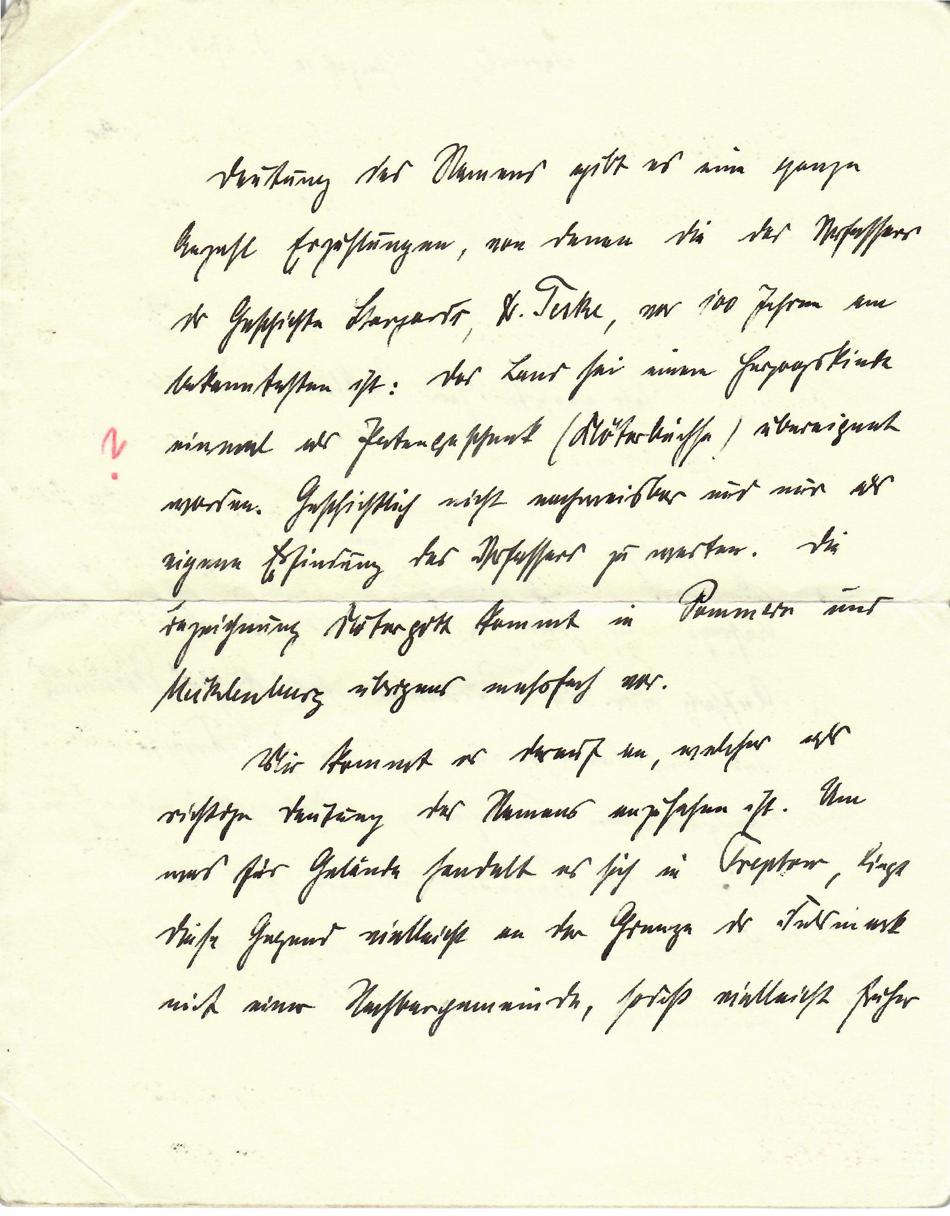 Deutung des Namens gibt es eine ganze
Anzahl Erzählungen, von denen die des Verfassers
der Geschichte Stargards, Dr. Teske, vor 100 Jahren am
bekanntesten ist: das Land sei einem Herzogskinde
?
einmal als Patengeschenk (Klöterbüchse) übereignet
worden. Geschichtlich nicht nachweisbar und nur als
eigene Erfindung des Verfassers zu werten. Die
Bezeichnung Klöterpott kommt in Pommern und
Mecklenburg übrigens mehrfach vor.
Mir kommt es darauf an, welcher als
richtige Deutung des Namens anzusehen ist. Um
was für Gelände handelt es sich in Treptow, liegt
diese Gegend vielleicht an der Grenze der Feldmark
mit einer Nachbargemeinde, sodaß vielleicht früher